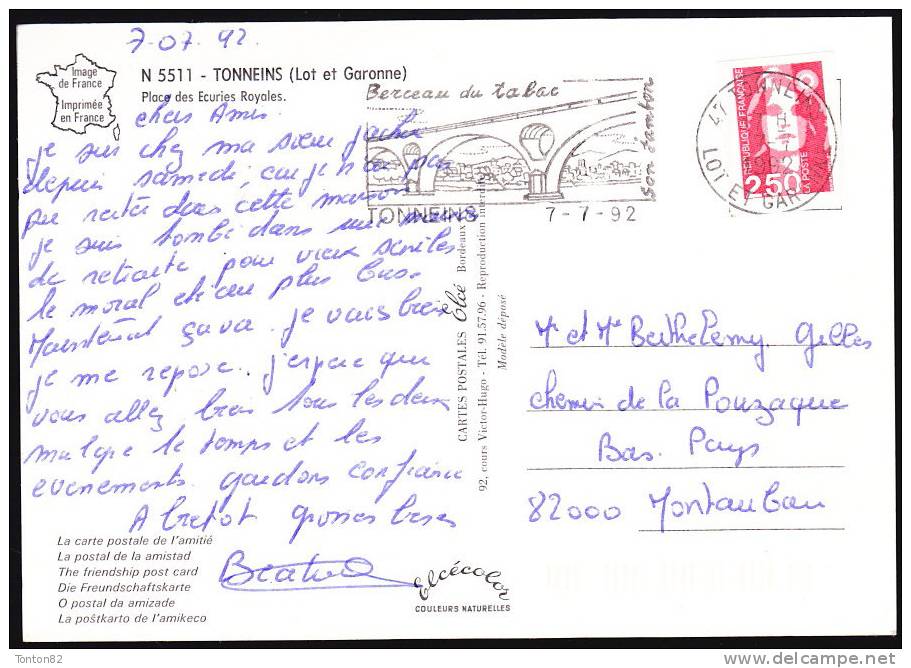 7-07-92.
Image
de France
Imprimée
en France
N 5511 - TONNEINS (Lot et Garonne)
Place des Ecuries Royales.
chers Amis
je suis chez ma sœur
depuis samedi, car je n'ai pas
pu rester dans cette maison
je suis tombé dans une
de retraite pour vieux séniles
le moral etait au plus bas.
Maintenant ça va. je vais bien
je me repose. j'espère que
vous allez bien tous les deux
malgré le temps et les
evenements. gardons confiance
A bientot grosses bises
La carte postale de l'amitié
La postal de la amistad
The friendship post card
Die Freundschaftskarte
O postal da amizade
La poŝtkarto de l'amikeco
Berceau du tabac
son jambon
TONNEINS 7-7-92
CARTES POSTALES Elcé Bordeaux
92, cours Victor-Hugo - Tél. 91.57.96 - Reproduction interdite
Modèle déposé
Elcécolor
COULEURS NATURELLES
47 TONNEINS
LOT ET GARONNE
REPUBLIQUE FRANÇAISE
2,50
LA POSTE
Mr et Me Berthelemy Gilles
chemin de la Pouzaque
Bas. Pays
82000 Montauban
Tonton82
delcampe.net